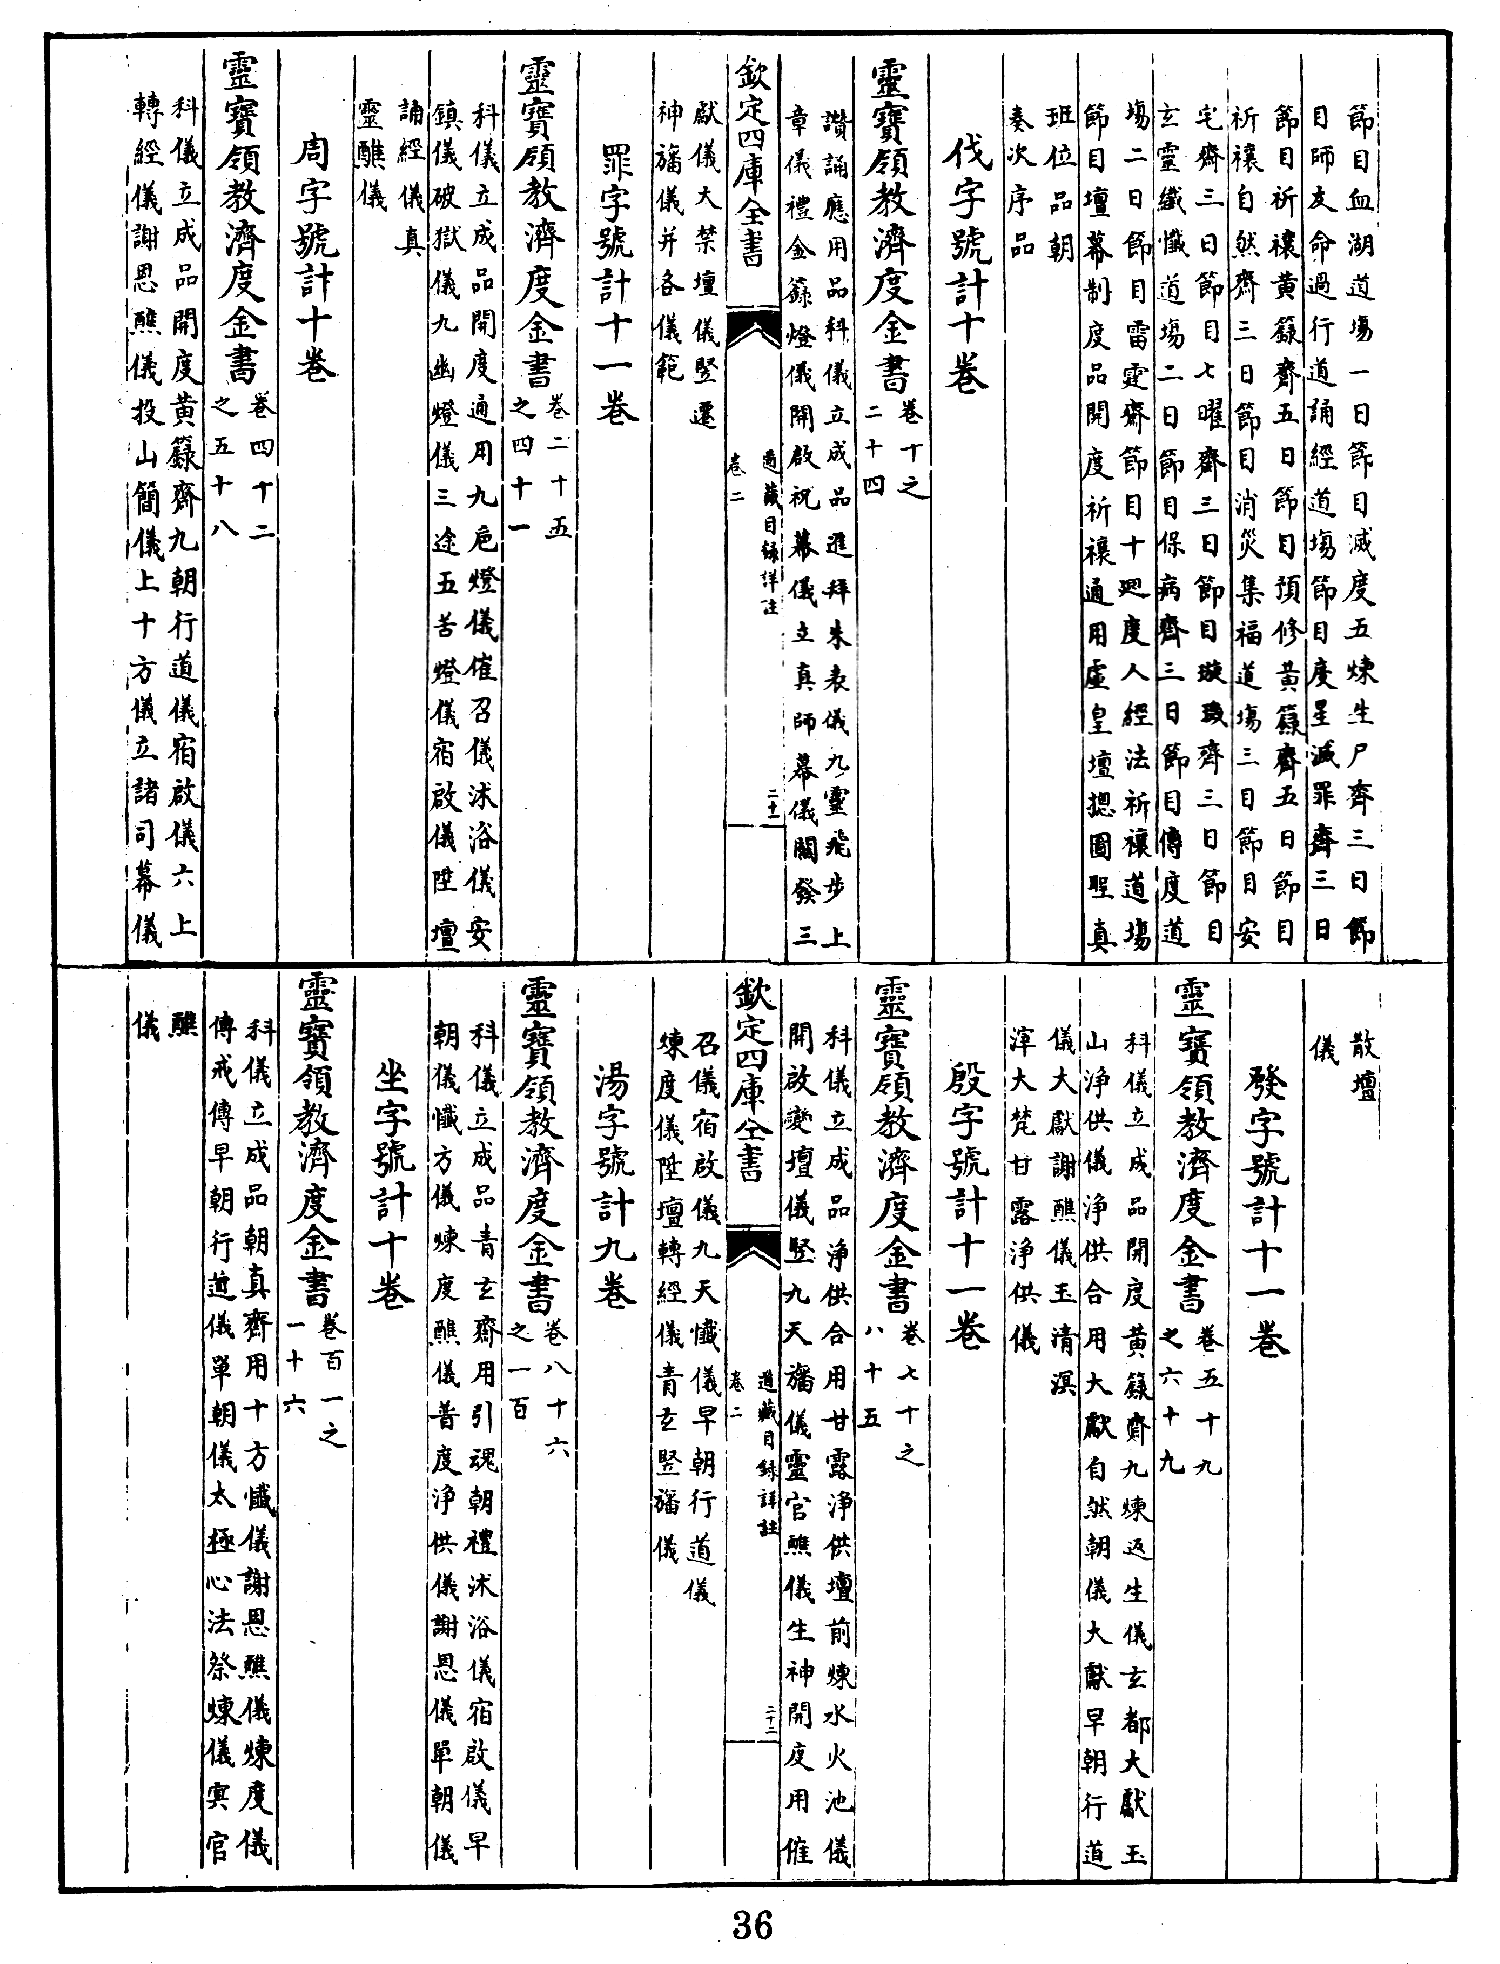 節目血湖道場一日節目滅度五煉生尸齊三日節
目師友命過行道誦經道場節目度星滅罪齊三日
節目祈禳黄籙齊五日節目預修黄籙齊五日節目
祈禳自然齊三日節目消災集福道場三日節目安
宅齊三日節目七曜齊三日節目璇璣齊三日節目
玄靈纖懺道場二日節目保病齊三日節目傳度道
場二日節目雷霆齊節目十廻度人經法祈禳道場
節目壇幕制度品開度祈禳通用虛皇壇摠圖聖真
班位品朝
奏次序品
伐字號計十卷
靈寶領教濟度金書
卷十之
二十四
讚誦應用品科儀立成品進拜朱表儀九靈飛步上
章儀禮金籙燈儀開啟祝幕儀立真師幕儀關發三
欽定四庫全書
道藏目録詳註
卷二
二十一
獻儀大禁壇儀豎遷
神旛儀并各儀範
罪字號計十一卷
靈寶領教濟度金書
卷二十五
之四十一
科儀立成品開度通用九巵燈儀催召儀沐浴儀安
鎮儀破獄儀九幽燈儀三途五苦燈儀宿啟儀陞壇
誦經儀真
靈醮儀
周字號計十卷
靈寶領教濟度金書
卷四十二
之五十八
科儀立成品開度黄籙齊九朝行道儀宿啟儀六上
轉經儀謝恩醮儀投山簡儀上十方儀立諸司幕儀
散壇
儀
發字號計十一卷
靈寶領教濟度金書
卷五十九
之六十九
科儀立成品開度黄籙齊九煉返生儀玄都大獻玉
山淨供儀淨供合用大獻自然朝儀大獻早朝行道
儀大獻謝醮儀玉清溟
滓大梵甘露淨供儀
殷字號計十一卷
靈寶領教濟度金書
卷七十之
八十五
科儀立成品淨供合用甘露淨供壇前煉水火池儀
開啟變壇儀豎九天旛儀靈官醮儀生神開度用催
欽定四庫全書
道藏目録詳註
卷二
二十二
召儀宿啟儀九天懺儀早朝行道儀
煉度儀陞壇轉經儀青玄豎旛儀
湯字號計九卷
靈寶領教濟度金書
卷八十六
之一百
科儀立成品青玄齊用引魂朝禮沐浴儀宿啟儀早
朝儀懺方儀煉度醮儀普度淨供儀謝恩儀單朝儀
坐字號計十卷
靈寶領教濟度金書
卷百一之
一十六
科儀立成品朝真齊用十方懺儀謝恩醮儀煉度儀
傳戒傳早朝行道儀單朝儀太極心法祭煉儀㝠官
醮
儀
36